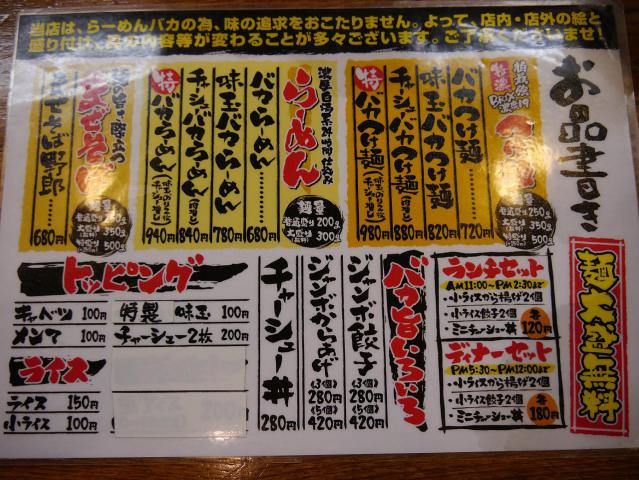 当店は、らーめんバカの為、味の追求をおこたりません。よって、店内・店外の絵と
盛り付け、具の内容等が変わることが多々ございます。ご了承くださいませ!
お品書き
麺大盛無料
特濃
つけ麺
バカつけ麺 720円
味玉バカつけ麺 820円
チャーシューバカつけ麺 880円
特バカつけ麺 980円
麺量
普通盛り 250g
大盛り 350g
特盛り 500g
らーめん
バカらーめん 680円
味玉バカらーめん 780円
チャーシューバカらーめん 840円
特バカらーめん 940円
麺量
普通盛り 200g
大盛り 300g
まぜそば
まぜそば野郎 680円
普通盛り 250g
大盛り 350g
特盛り 500g
ランチセット
AM11:00~PM2:30まで
・小ライスから揚げ2個
・小ライス餃子2個
・ミニチャーシュー丼
各120円
ディナーセット
PM5:30~PM12:00まで
・小ライスから揚げ2個
・小ライス餃子2個
・ミニチャーシュー丼
各180円
バカ旨いろいろ
ジャンボ餃子
(3個) 280円
(5個) 420円
ジャンボからあげ
(3個) 280円
(5個) 420円
チャーシュー丼 280円
トッピング
キャベツ 100円
メンマ 100円
特製 味玉 100円
チャーシュー2枚 200円
ライス
ライス 150円
小ライス 100円